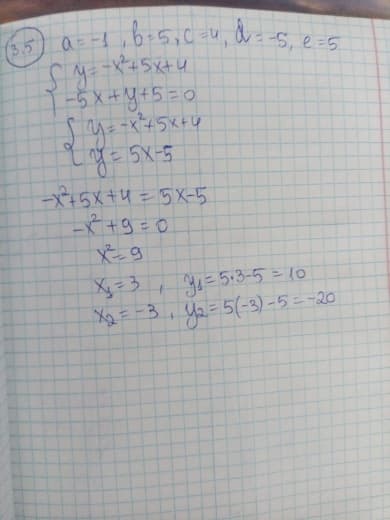 3.5 a=-1, b=5, c=4, d=-5, e=5
{ y=-x²+5x+4
-5x+y+5=0
{ y=-x²+5x+4
y=5x-5
-x²+5x+4=5x-5
-x²+9=0
x²=9
x₁=3, y₁=5·3-5=10
x₂=-3, y₂=5(-3)-5=-20